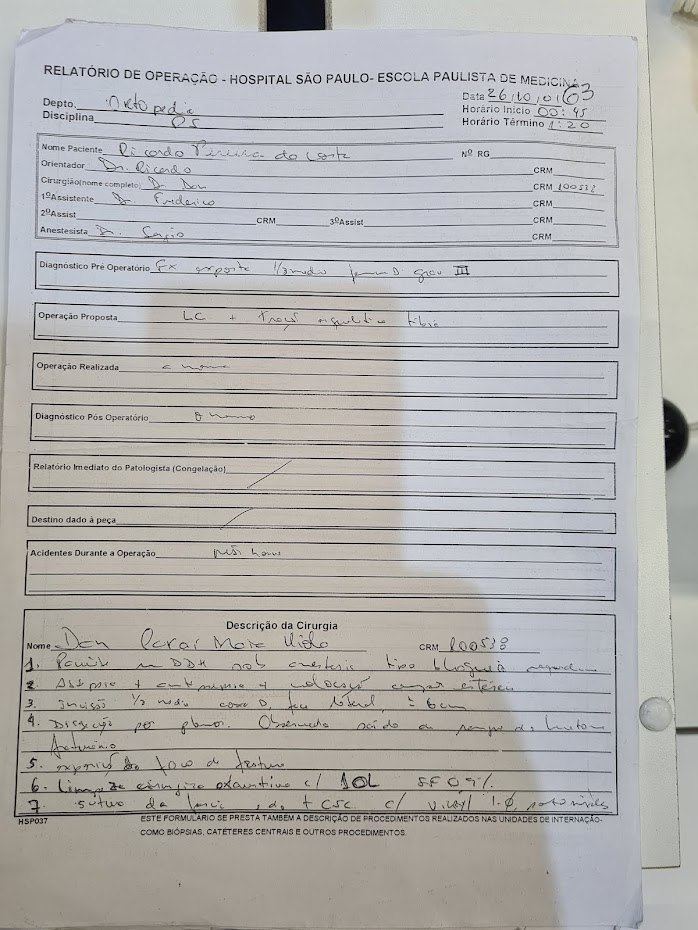 RELATÓRIO DE OPERAÇÃO - HOSPITAL SÃO PAULO- ESCOLA PAULISTA DE MEDICINA
Depto. Ortopedia
Data 26/10/01/03
Disciplina PS
Horário Início 00:45
Horário Término 1:20
Nome Paciente Ricardo Pereira da Costa Nº RG
Orientador Dr. Ricardo CRM
Cirurgião(nome completo) Dr. Dan CRM 100538
1ºAssistente Dr. Frederico CRM
2ºAssist CRM 3ºAssist CRM
Anestesista Dr. Sergio CRM
Diagnóstico Pré Operatorio Fx exposta 1/3 médio femur D grau III
Operação Proposta LC + Tração esquelética tibia
Operação Realizada
Diagnóstico Pós Operatório
Relatório Imediato do Patologista (Congelação)
Destino dado à peça
Acidentes Durante a Operação não houve
Descrição da Cirurgia
Nome Dan CRM 100538
1. Paciente em DDH sob anestesia tipo bloqueio
2. Assepsia + antissepsia + colocação campos estéreis
3. Incisão 1/3 médio coxa D, face lateral, ± 6cm
4. Dissecção por planos. Observado saída de
5. exposição do foco de fratura
6. Limpeza cirurgica exaustiva c/ 10L SF 0,9%
7. sutura da fascia, + CSC c/ vicryl 1-0, pontos simples
HSP037
ESTE FORMULÁRIO SE PRESTA TAMBÉM A DESCRIÇÃO DE PROCEDIMENTOS REALIZADOS NAS UNIDADES DE INTERNAÇÃO-
COMO BIÓPSIAS, CATÉTERES CENTRAIS E OUTROS PROCEDIMENTOS.